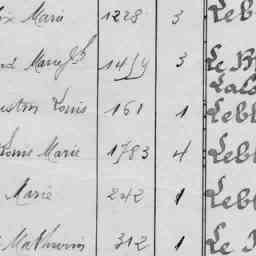 Marie 1228 3 Leb
Marie Jh 1459 3 Le
ustin Louis 161 1 Lebl
Louis Marie 1783 4 Lebl
Marie 242 1 Lebl
Mathurin 312 1 Le